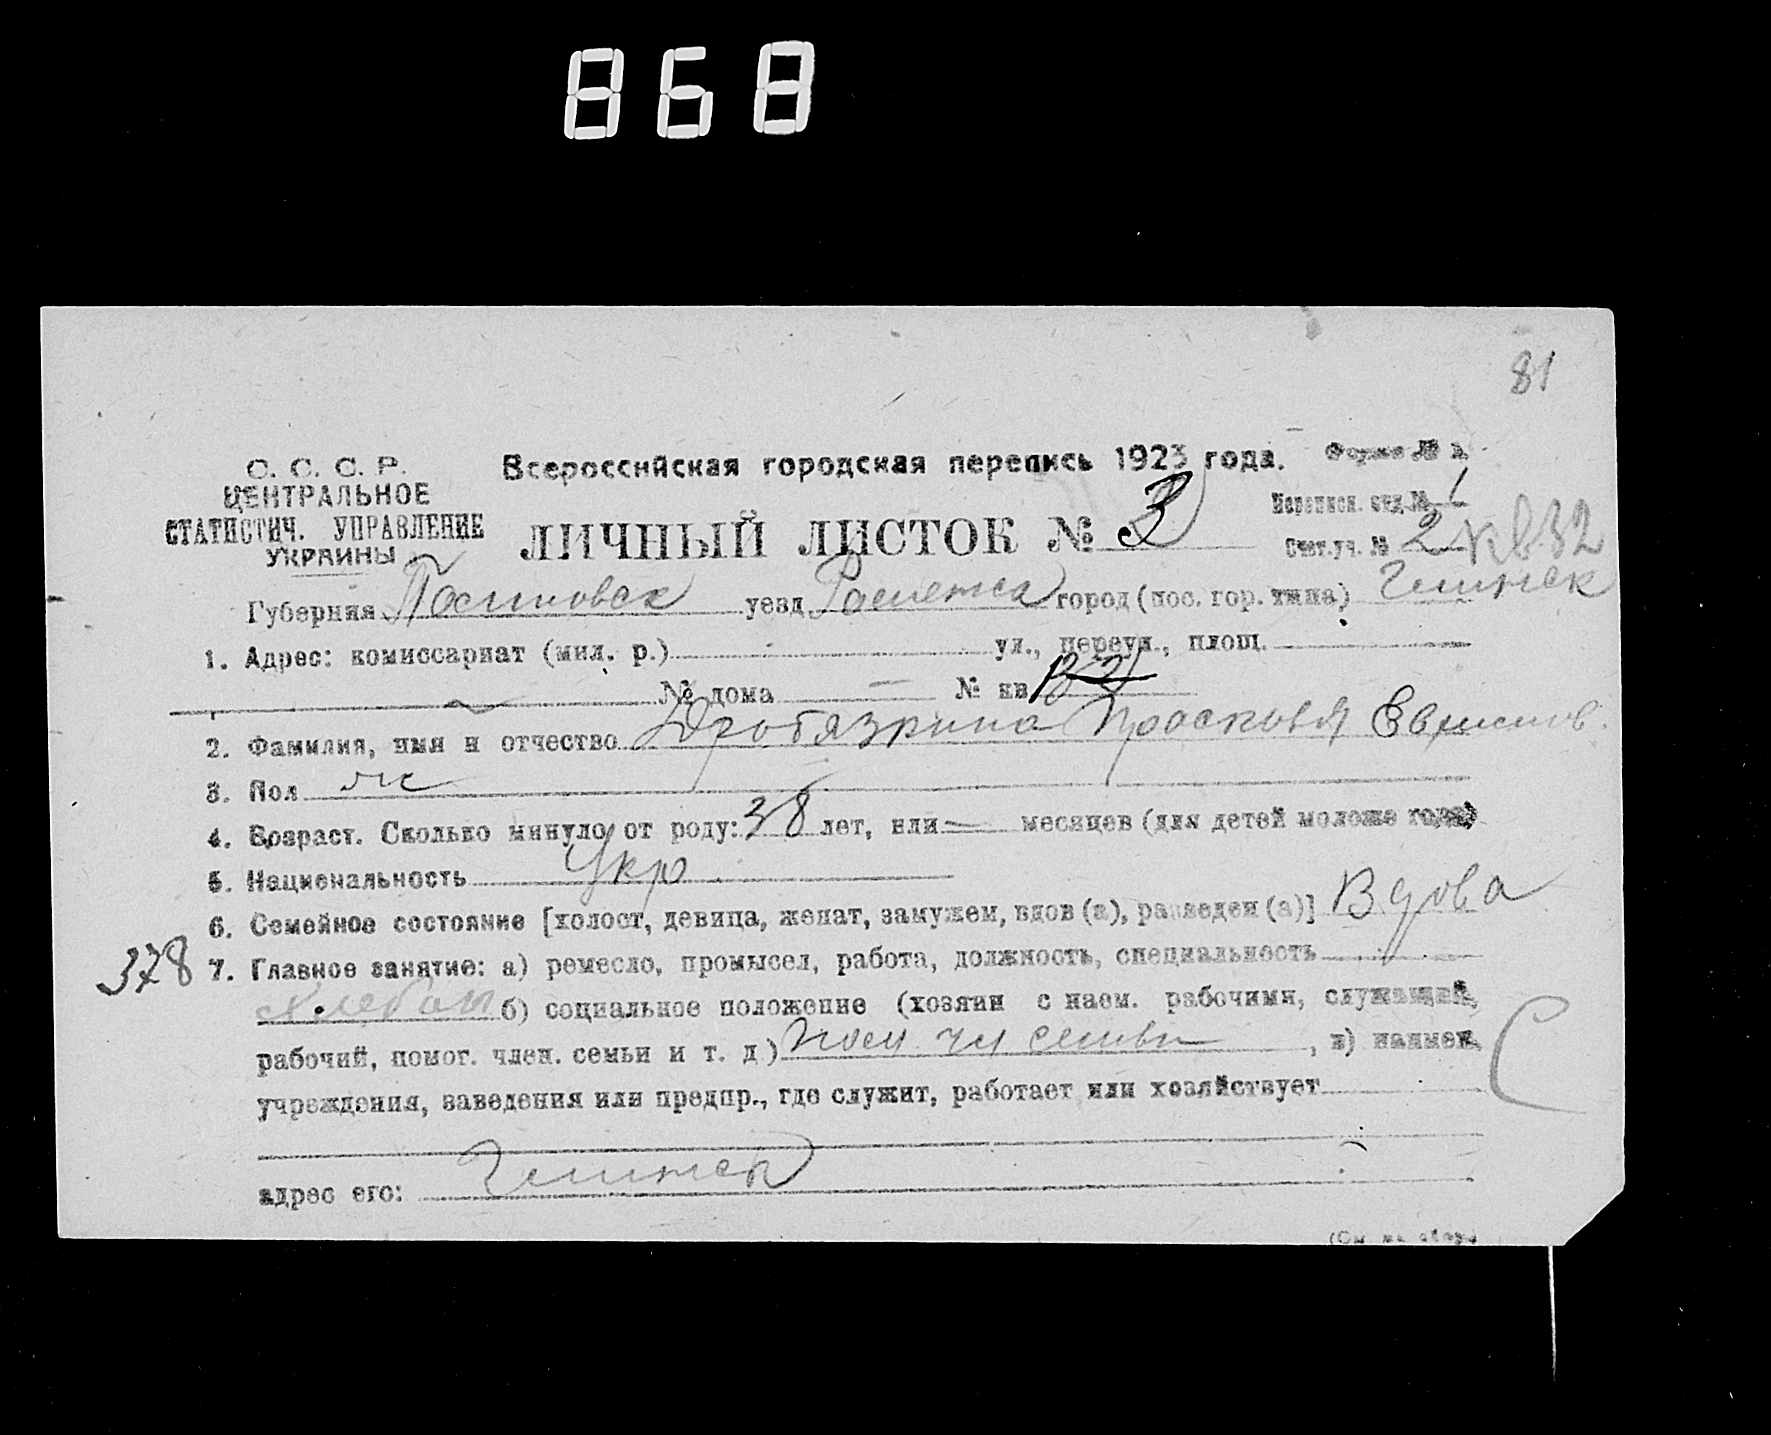 868
81
С. С. С. Р.
ЦЕНТРАЛЬНОЕ
СТАТИСТИЧ. УПРАВЛЕНИЕ
УКРАИНЫ
Всероссийская городская перепись 1923 года.
Форма №
ЛИЧНЫЙ ЛИСТОК № 3
Переписн. отд. № 1
Счет. уч. № 2
Губерния уезд город (пос. гор. типа) Глинск
1. Адрес: комиссариат (мил. р.) ул., переул., площ.
№ дома — № кв
2. Фамилия, имя и отчество Просковья
3. Пол ж
4. Возраст. Сколько минуло от роду: 38 лет, или — месяцев (для детей моложе года)
5. Национальность Укр
6. Семейное состояние [холост, девица, женат, замужем, вдов (а), разведен (а)] Вдова
378 7. Главное занятие: а) ремесло, промысел, работа, должность, специальность
б) социальное положение (хозяин с наем. рабочими, служащий,
рабочий, помог. член. семьи и т. д) пом чл семьи , в) наимен.
учреждения, заведения или предпр., где служит, работает или хозяйствует
адрес его: Глинск
(См. на обор.